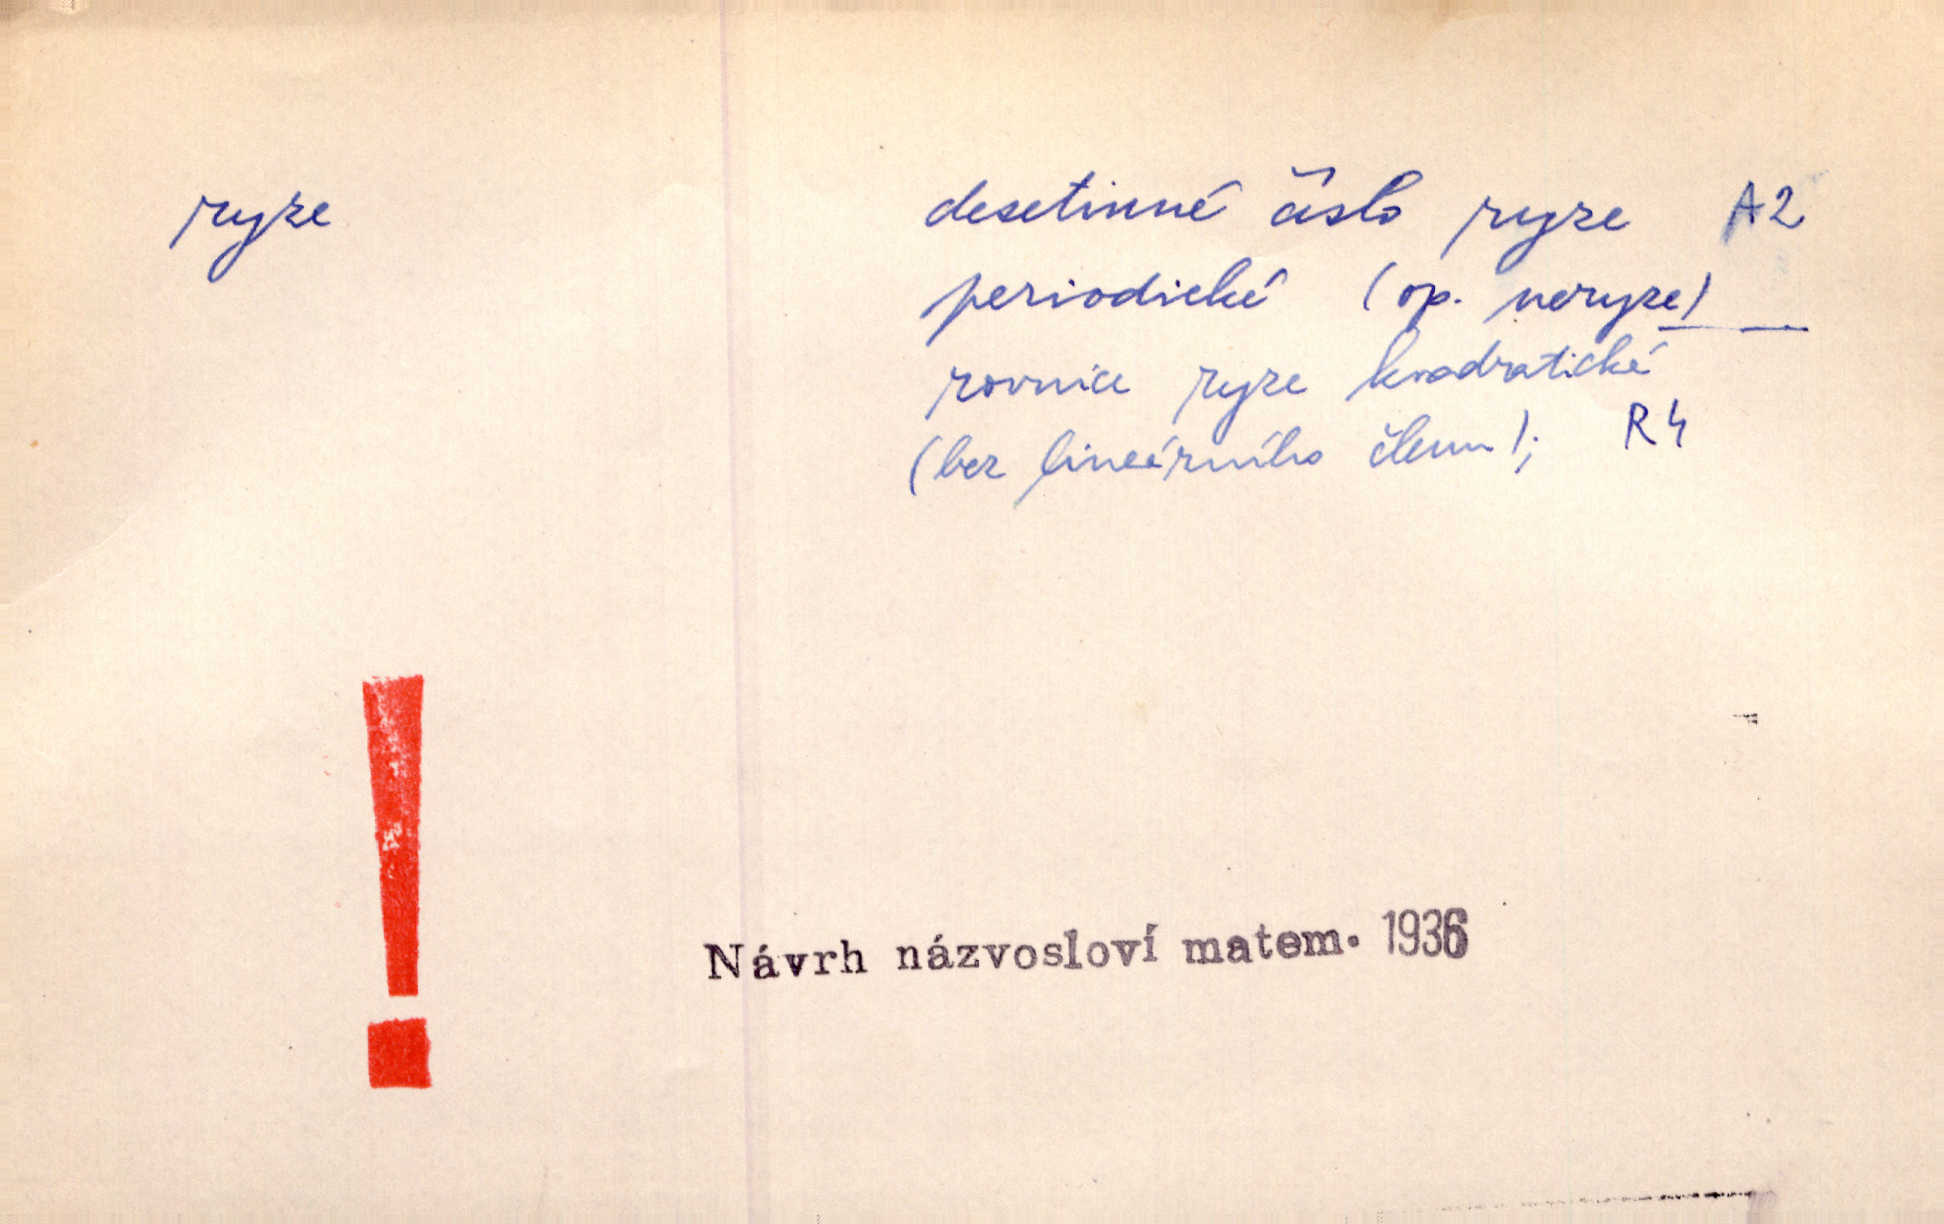 ryze
desetinné číslo ryze A2
periodické (op. neryze)
rovnice ryze kvadratické
(bez lineárního členu); R4
!
Návrh názvosloví matem. 1936